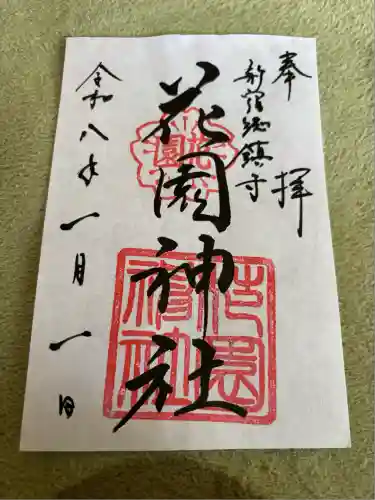 奉拝
新宿総鎮守
花園神社
令和八年一月一日